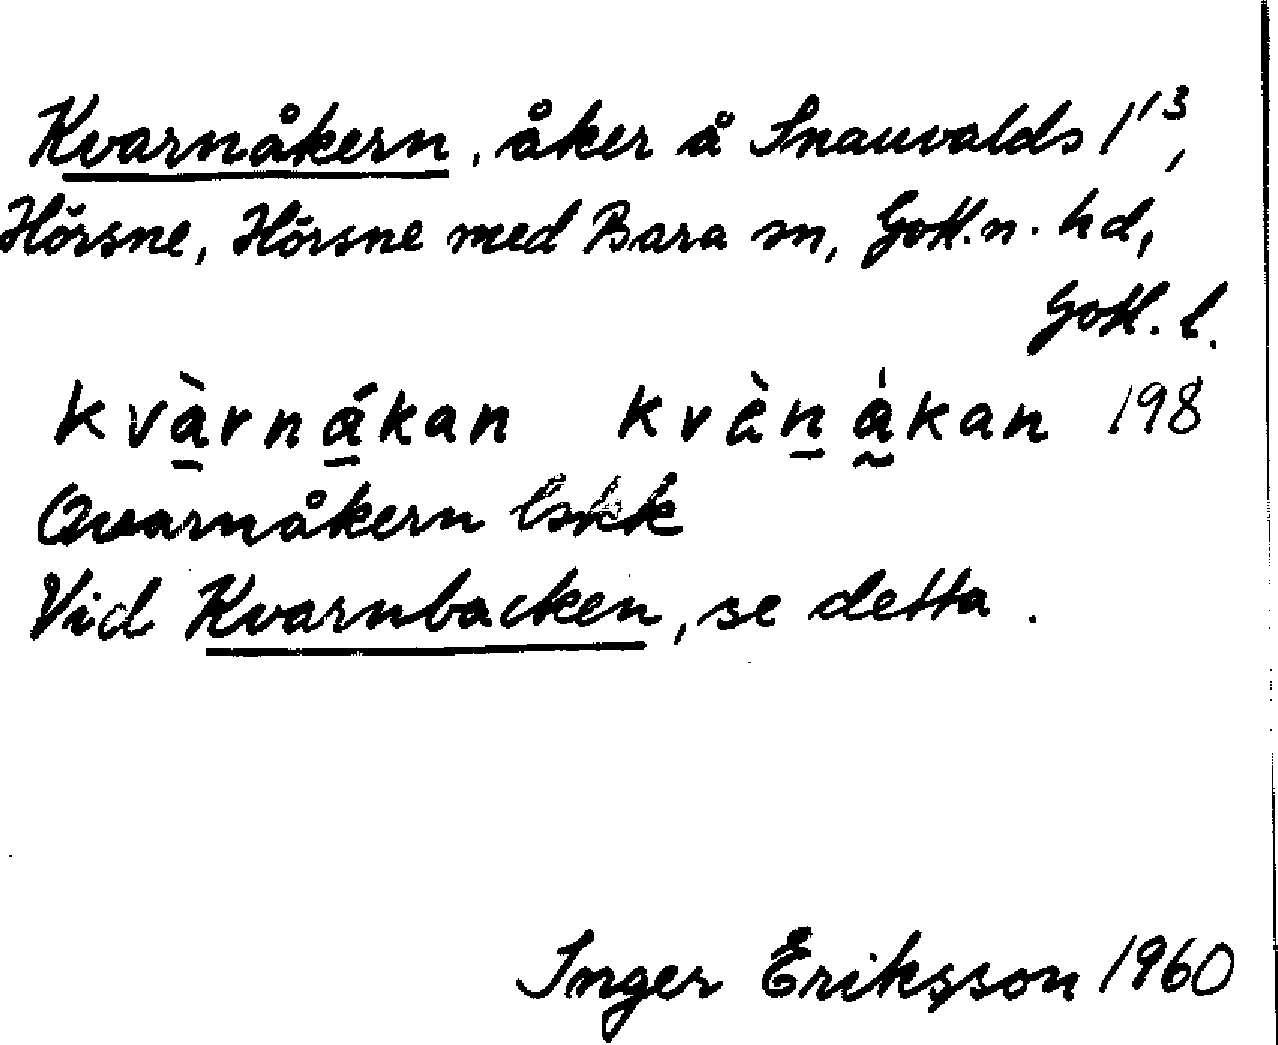 Kvarnåkern, åker å Snauvalds 1¹³,
Hörsne, Hörsne med Bara sn, Gotl.n. hd,
Gotl. l.
kvà̱rná̱kan kvàṉa̰̍kan 198
Qvarnåkern lskk
Vid Kvarnbacken, se detta.
Inger Eriksson 1960